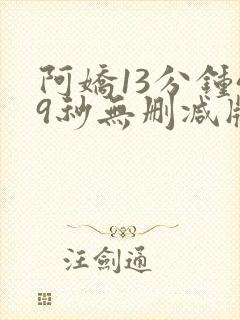 阿嬌13分鍾
9秒無删减版
汪劍通